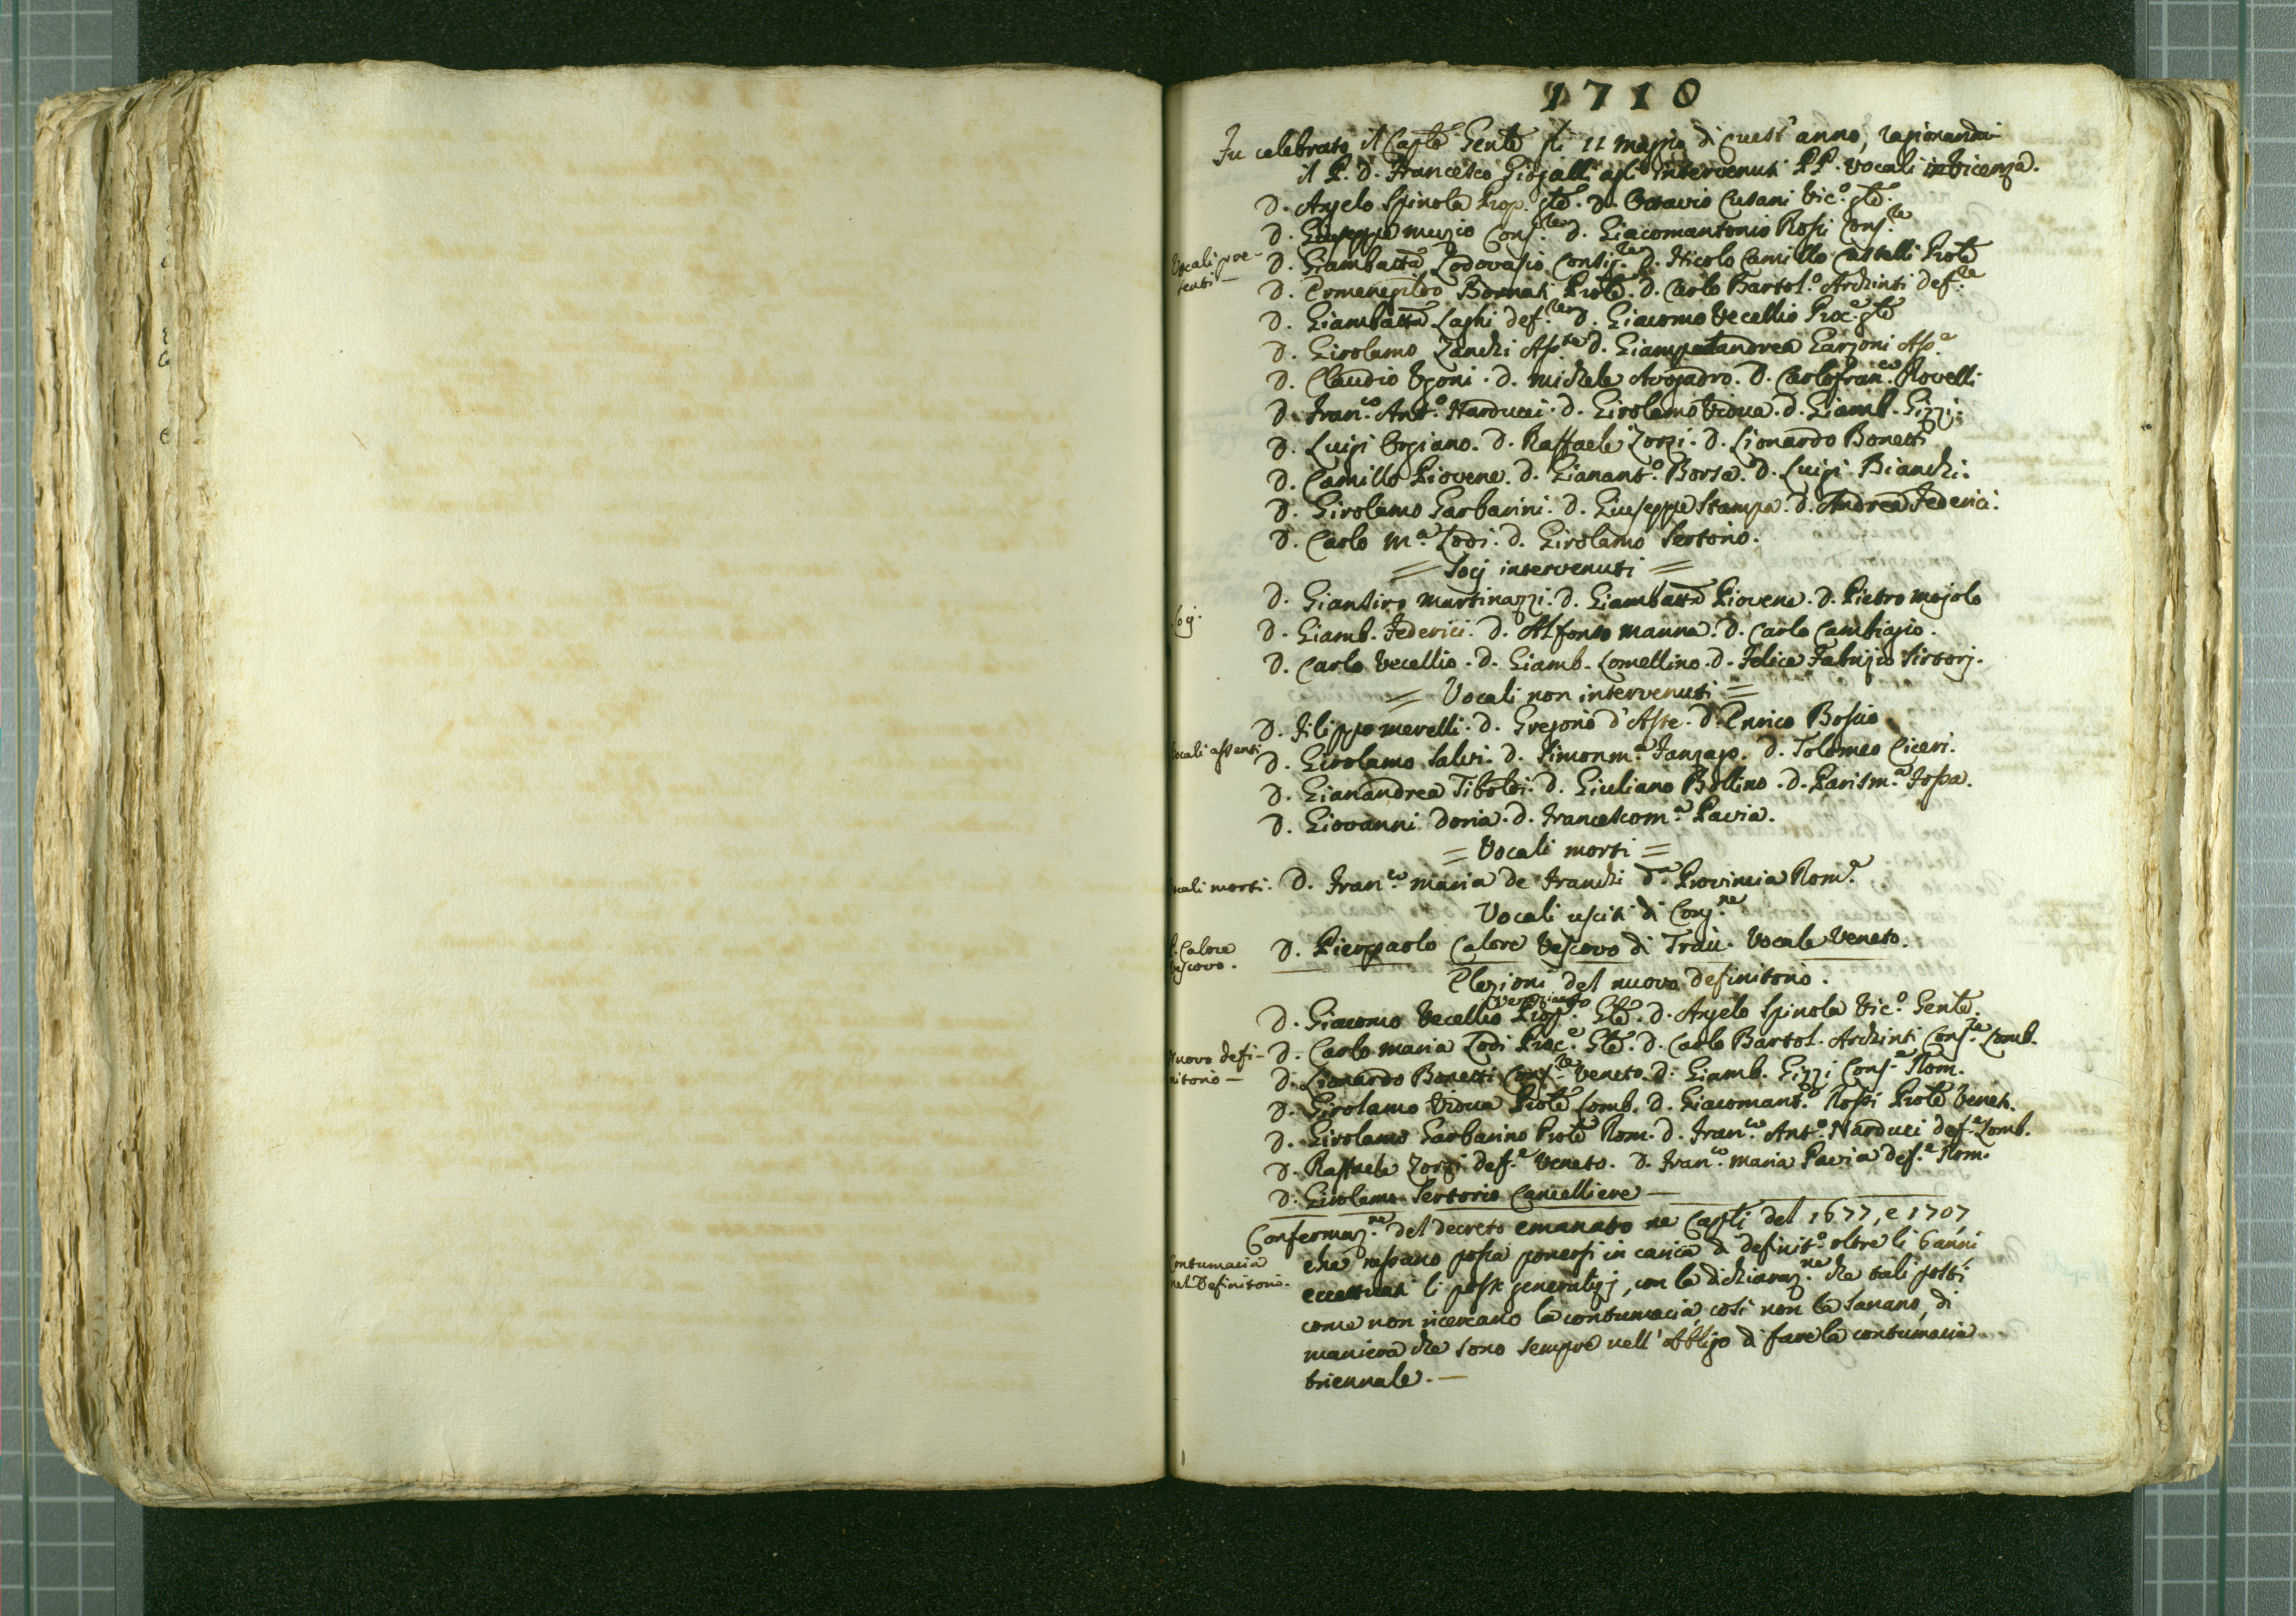 1710
Fu celebrato il Caplo Genle gli 11 maggio di quest' anno, ragionando
il P. D. Francesco agli intervenuti PP. Vocali in Vicenza.
D. Angelo Spinola Prop. gle. D. Ottavio Cusani Vic.o gle.
Vocali pre-
senti -
D. Giuseppe Muzio Cons.re D. Giacomantonio Rossi Cons.re
D. Giambatta Lodovasio Consig.re D. Nicolo Camillo Castelli Prole
D. Ermenegildo Bornati Prole. D. Carlo Bartol.o Archinti def.re
D. Giambatta Laghi def.re D. Giacomo Vecellio Proc.e gle
D. Girolamo Zanchi Ass.te D. Giampietrandrea Garzoni Ass.e
D. Claudio Ugoni. D. Michele Avogadro. D. Carlofran.co Rovelli
D. Fran.co Ant.o Narducci. D. Girolamo Vidua. D. Giamb. Gizzi.
D. Luigi Orgiano. D. Raffaele Zorzi. D. Lionardo Bonetti
D. Camillo Piovene. D. Gianant.o Borsa. D. Luigi Bianchi.
D. Girolamo Garbarini. D. Giuseppe Stampa. D. Andrea Federici.
D. Carlo M.a Lodi. D. Girolamo Sertorio.
= Socj intervenuti =
Socj.
D. Giansiro Martinazzi. D. Giambatta Piovene. D. Pietro Mojolo
D. Giamb. Federici. D. Alfonso Manna. D. Carlo Cambiagio.
D. Carlo Vecellio. D. Giamb. Lomellino. D. Felice Fabrizio Sirtorj.
= Vocali non intervenuti =
D. Filippo Merelli. D. Gregorio d'Aste. D. Enrico Boscio
Vocali assenti
D. Girolamo Salvi. D. Simonm.a Fanzago. D. Tolomeo Ciceri.
D. Gianandrea Tiboldi. D. Giuliano Bollino. D. Parism.a Fossa.
D. Giovanni Doria. D. Francescom.a Pavia.
= Vocali morti =
Vocali morti.
D. Fran.co Maria de Franchi d.a Provincia Rom.a
Vocali usciti di Cong.ne
P. Calore
Vescovo.
D. Pierpaolo Calore Vescovo di Traù. Vocale Veneto.
Elezioni del nuovo definitorio.
veneziano
D. Giacomo Vecellio Prop. Gle. D. Angelo Spinola Vic.o Genle.
Nuovo defi-
nitorio -
D. Carlo Maria Lodi Proc.e Gle. D. Carlo Bartol. Archinti Cons.re Lomb.
D. Lionardo Bonetti Cons.re Veneto. D. Giamb. Gizzi Cons.e Rom.
D. Girolamo Vidua Prole Lomb. D. Giacomant.o Rossi Prole Venet.
D. Girolamo Garbarino Prole Rom. D. Fran.co Ant.o Narducci def.e Lomb.
D. Raffaele Zorzi def.e Veneto. D. Fran.co Maria Pavia def.e Rom.
D. Girolamo Sertorio Cancelliere -
Confermaz.ne del decreto emanato ne Capli del 1677, e 1707
Contumacia
nel Definitorio.
che nessuno possa ponersi in carica di definit.o oltre li 6 anni
eccettuati li posti generalizj, con la dichiaraz.ne che tali posti
come non ricercano la contumacia, così non la sanano, di
maniera che sono sempre nell' obbligo di fare la contumacia
triennale. -